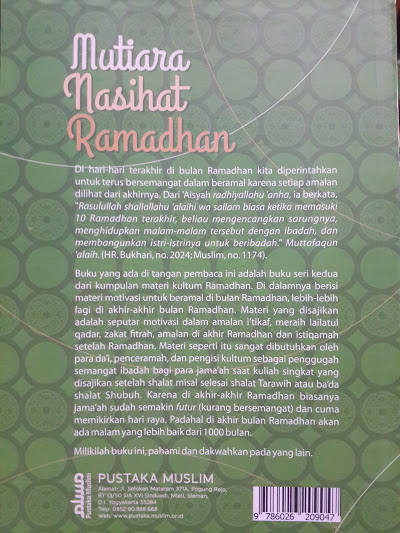 Mutiara
Nasihat
Ramadhan
Di hari-hari terakhir di bulan Ramadhan kita diperintahkan
untuk terus bersemangat dalam beramal karena setiap amalan
dilihat dari akhirnya. Dari 'Aisyah radhiyallahu 'anha, ia berkata,
"Rasulullah shallallahu 'alaihi wa sallam biasa ketika memasuki
10 Ramadhan terakhir, beliau mengencangkan sarungnya,
menghidupkan malam-malam tersebut dengan ibadah, dan
membangunkan istri-istrinya untuk beribadah." Muttafaqun
'alaih. (HR. Bukhari, no. 2024; Muslim, no. 1174).
Buku yang ada di tangan pembaca ini adalah buku seri kedua
dari kumpulan materi kultum Ramadhan. Di dalamnya berisi
materi motivasi untuk beramal di bulan Ramadhan, lebih-lebih
lagi di akhir-akhir bulan Ramadhan. Materi yang disajikan
adalah seputar motivasi dalam amalan i'tikaf, meraih lailatul
qadar, zakat fitrah, amalan di akhir Ramadhan dan istiqamah
setelah Ramadhan. Materi seperti itu sangat dibutuhkan oleh
para da'i, penceramah, dan pengisi kultum sebagai penggugah
semangat ibadah bagi para jama'ah saat kuliah singkat yang
disajikan setelah shalat misal selesai shalat Tarawih atau ba'da
shalat Shubuh. Karena di akhir-akhir Ramadhan biasanya
jama'ah sudah semakin futur (kurang bersemangat) dan cuma
memikirkan hari raya. Padahal di akhir bulan Ramadhan akan
ada malam yang lebih baik dari 1000 bulan.
Milikilah buku ini, pahami dan dakwahkan pada yang lain.
Pustaka Muslim
PUSTAKA MUSLIM
Alamat: Jl. Selokan Mataram 371A, Pogung Rejo,
RT 13/50 SIA XVI Sinduadi, Mlati, Sleman,
D.I. Yogyakarta 55284
Telp: 0852 90 888 668
Web: www.pustaka.muslim.or.id
9 786026 209047